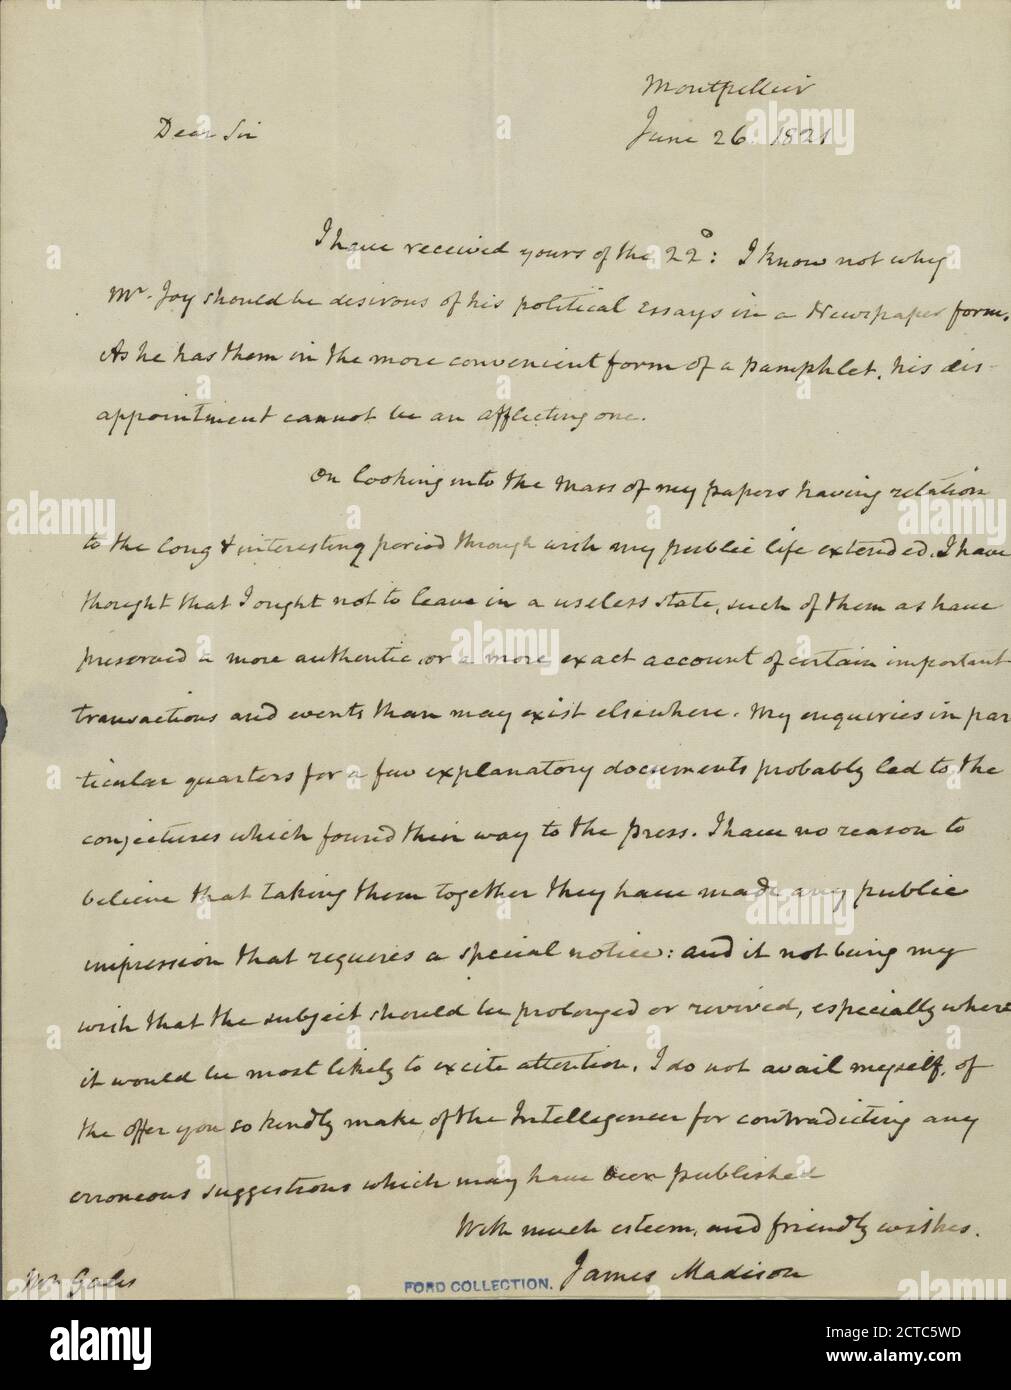 Montpellier
June 26. 1821
Dear Sir
I have received yours of the 22°: I know not why
Mr. Joy should be desirous of his political Essays in a Newspaper form.
As he has them in the more convenient form of a pamphlet, his dis-
appointment cannot be an afflicting one.
On looking into the mass of my papers having relation
to the long & interesting period through wich my public life extended, I have
thought that I ought not to leave in a useless state, such of them as have
preserved a more authentic, or a more exact account of certain important
transactions and events than may exist elsewhere. My enquiries in par
ticular quarters for a few explanatory documents probably led to the
conjectures which found their way to the press. I have no reason to
believe that taking them together they have made any public
impression that requires a special notice: and it not being my
wish that the subject should be prolonged or revived, especially where
it would be most likely to excite attention, I do not avail myself, of
the offer you so kindly make, of the Intelligencer for contradicting any
erroneous suggestions which may have been published
With much esteem, and friendly wishes.
James Madison
Mr Gales
FORD COLLECTION.
alamy
Image ID: 2CTC5WD
www.alamy.com